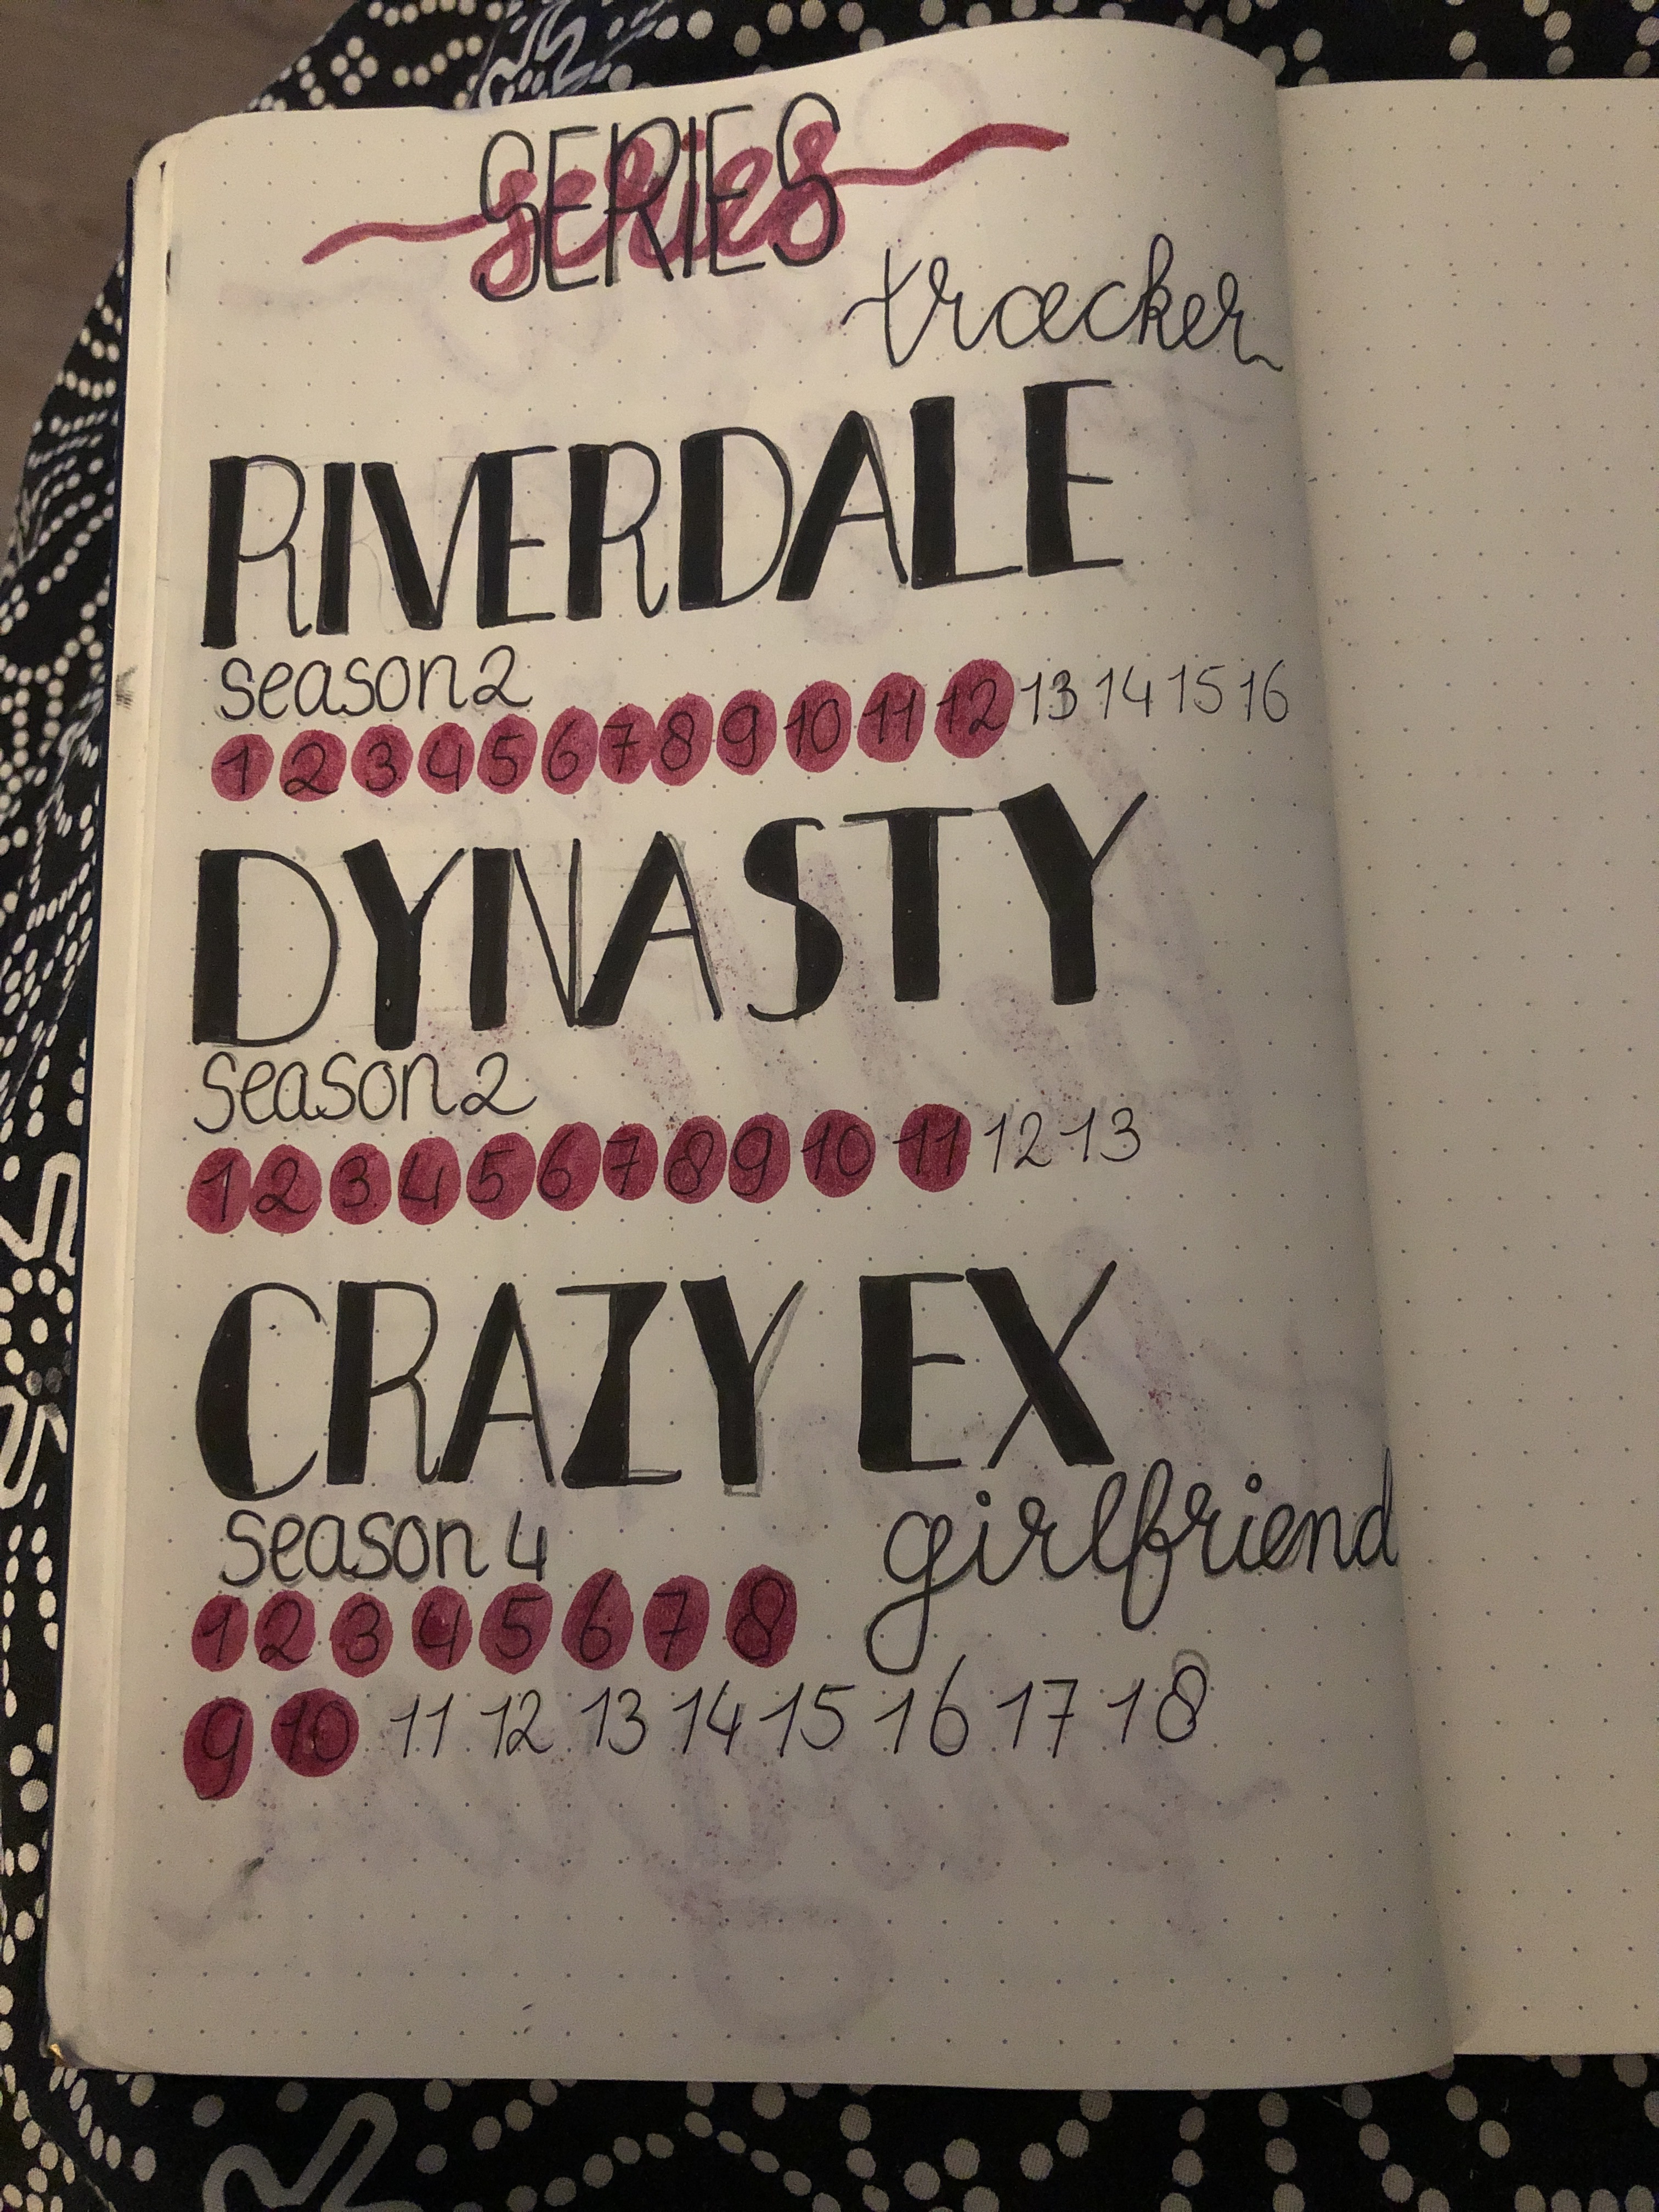 SERIES
series
tracker
RIVERDALE
season 2
1 2 3 4 5 6 7 8 9 10 11 12 13 14 15 16
DYNASTY
season 2
1 2 3 4 5 6 7 8 9 10 11 12 13
CRAZY EX
girlfriend
season 4
1 2 3 4 5 6 7 8
9 10 11 12 13 14 15 16 17 18